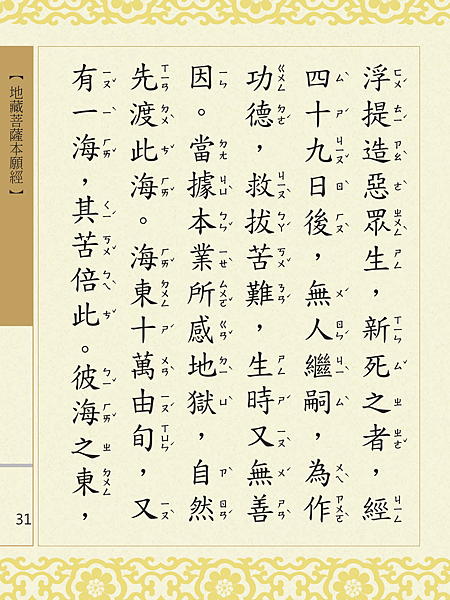 浮提造惡眾生，新死之者，經
四十九日後，無人繼嗣，為作
功德，救拔苦難，生時又無善
因。當據本業所感地獄，自然
先渡此海。海東十萬由旬，又
有一海，其苦倍此。彼海之東，
【地藏菩薩本願經】
31